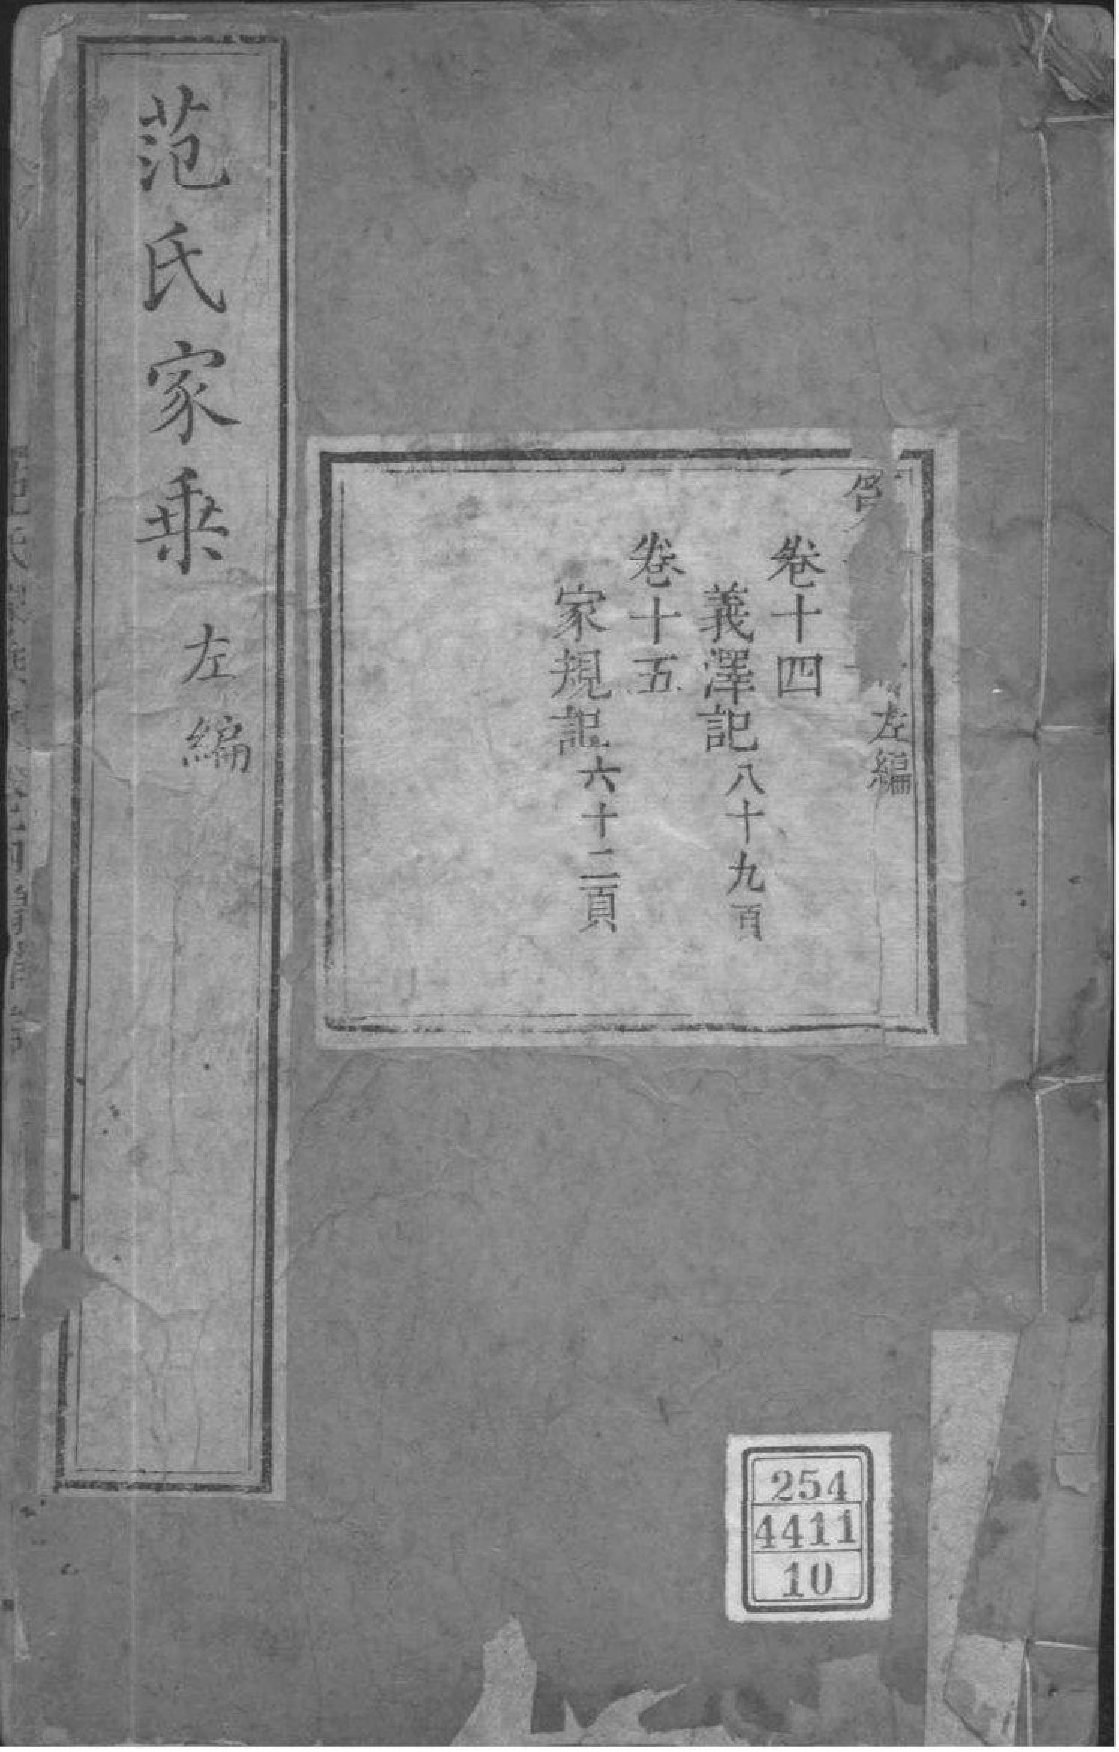 左編
卷十四
義澤記八十九頁
卷十五
家規記六十二頁
范氏家乗左編
254
4411
10